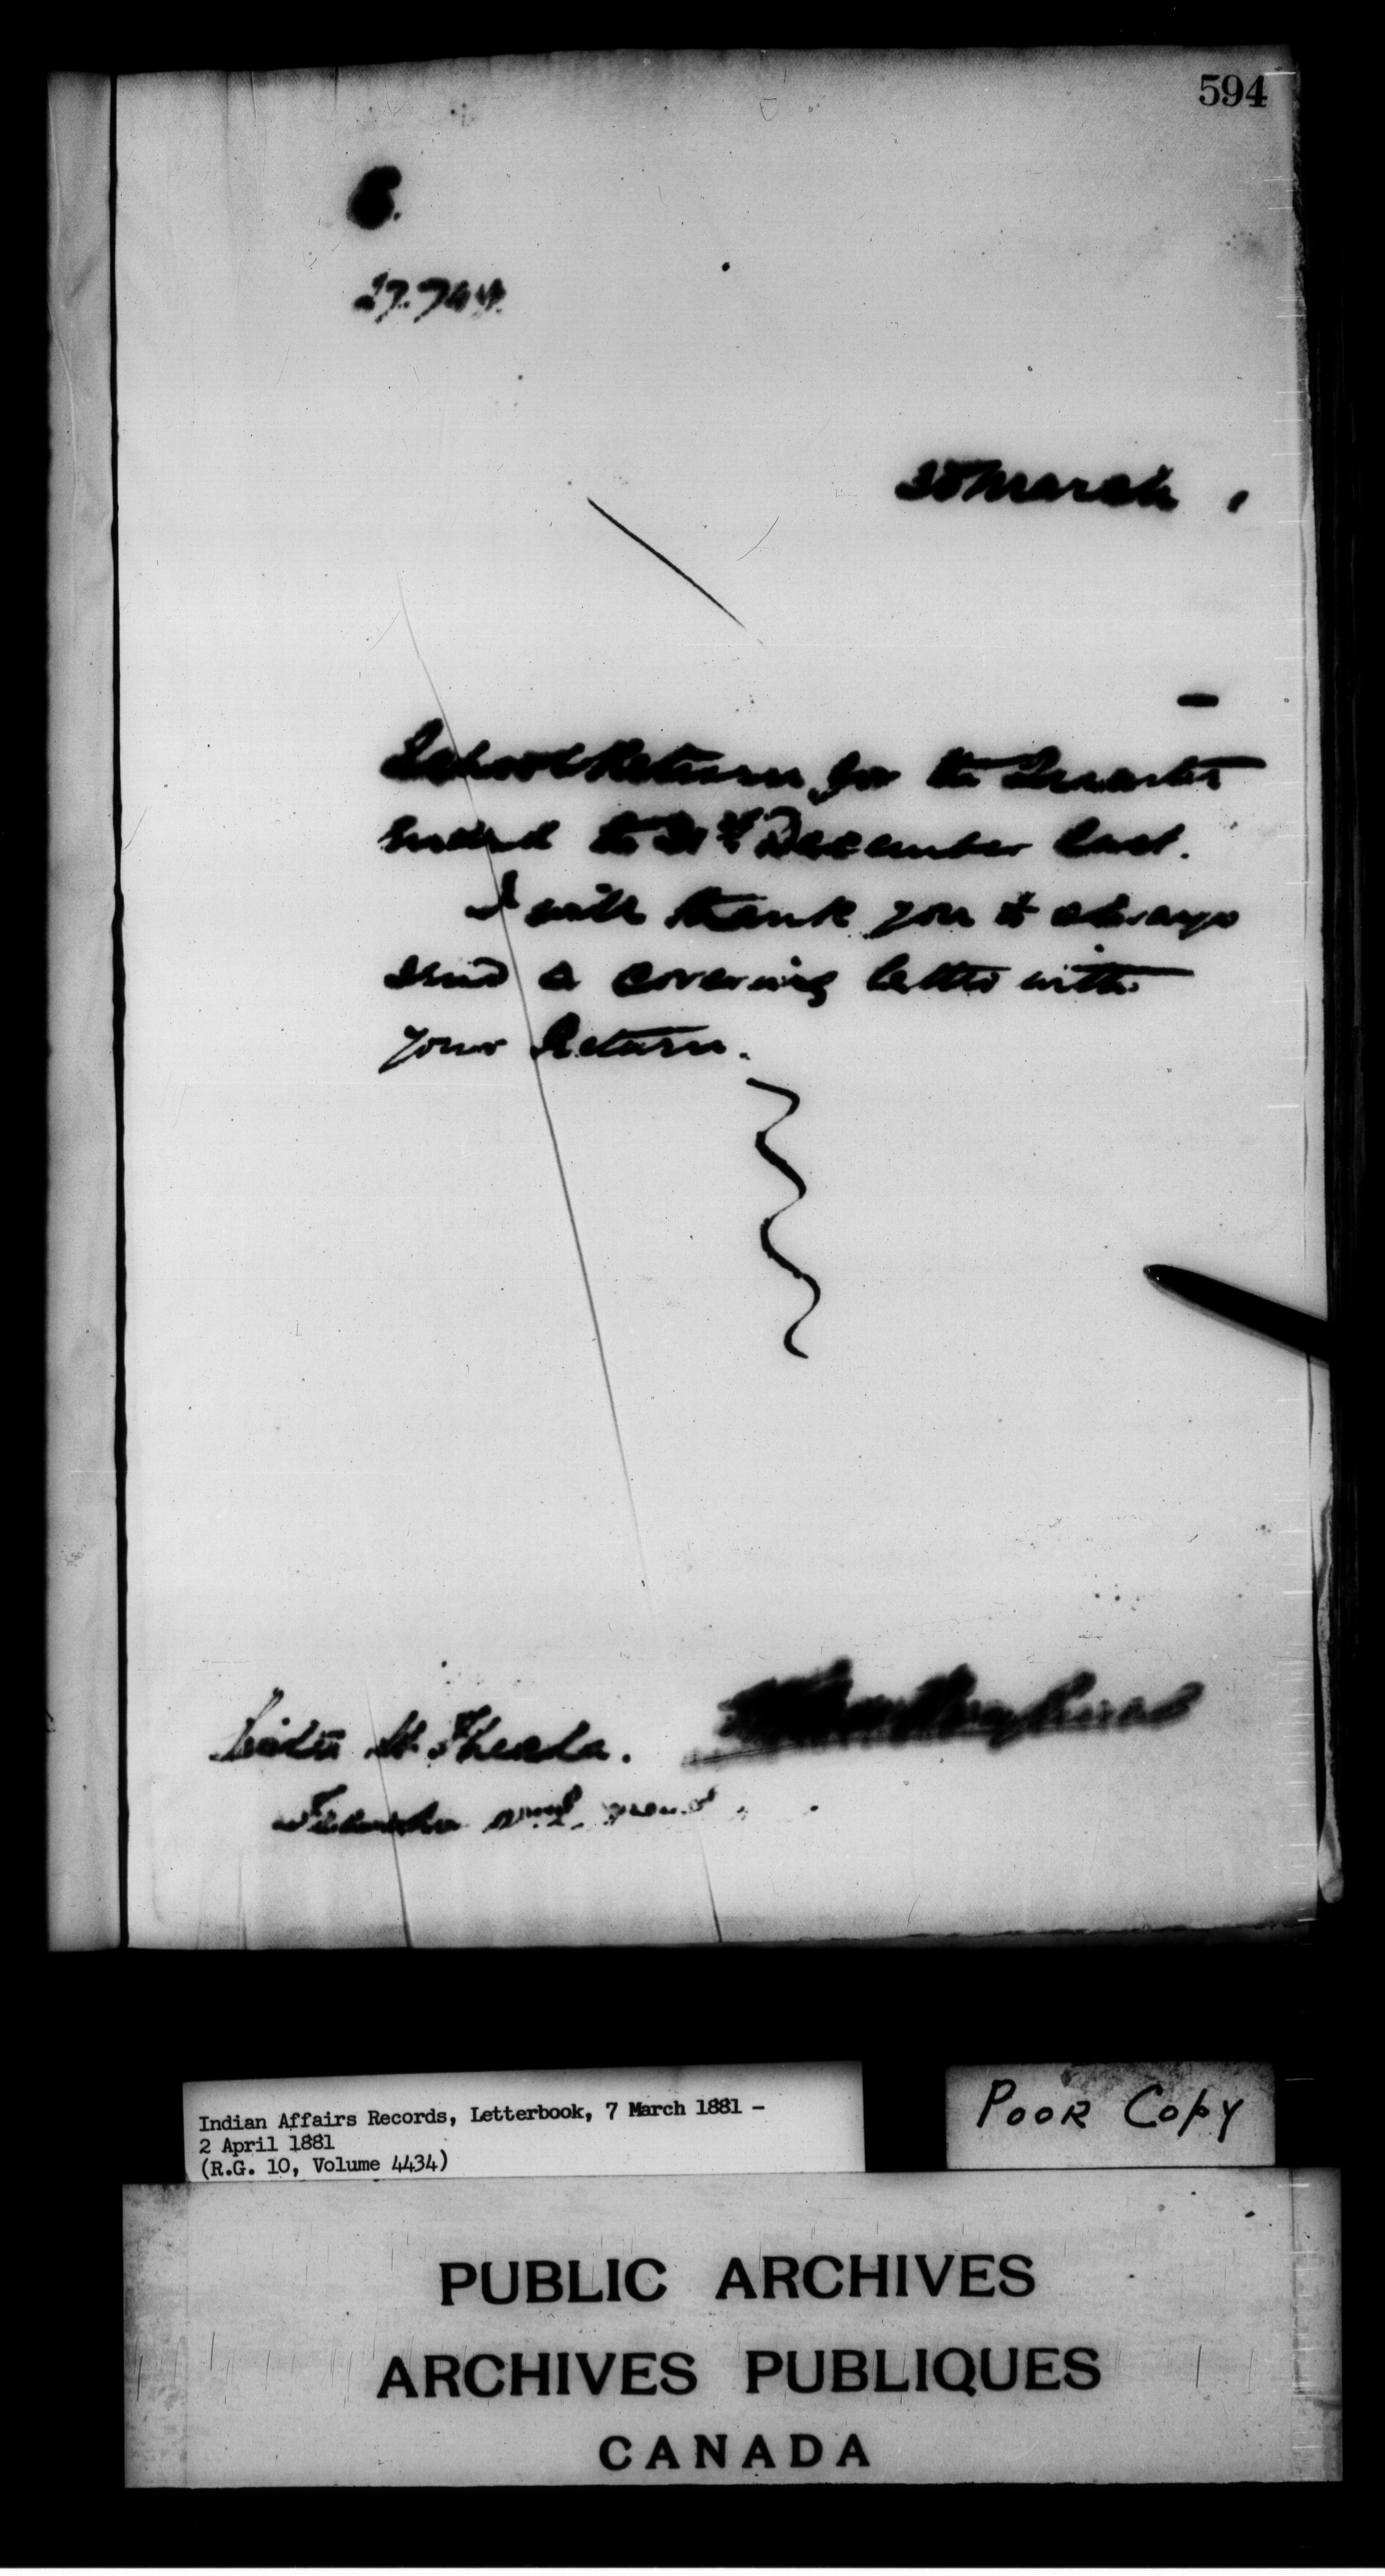 594
30 March
School Return for the Quarter
ended the 31st December last.
I will thank you to always
send a covering letter with
your Return.
Sister St.
Indian Affairs Records, Letterbook, 7 March 1881 -
2 April 1881
(R.G. 10, Volume 4434)
POOR COPY
PUBLIC ARCHIVES
ARCHIVES PUBLIQUES
CANADA